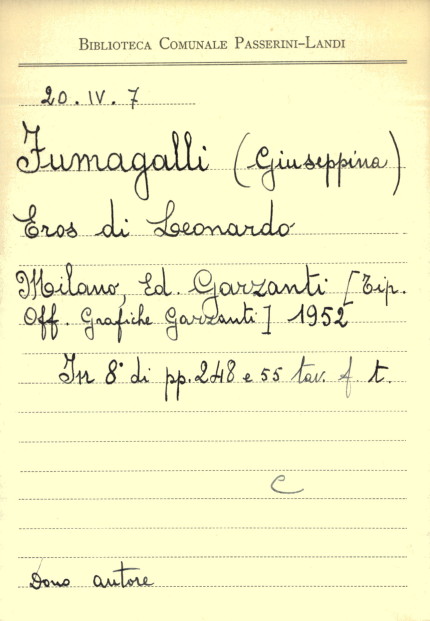 BIBLIOTECA COMUNALE PASSERINI-LANDI
20. IV. 7
Fumagalli (Giuseppina)
Eros di Leonardo
Milano, Ed. Garzanti [Tip.
Off. Grafiche Garzanti] 1952
In 8° di pp. 248 e 55 tav. f. t.
C
Dono autore